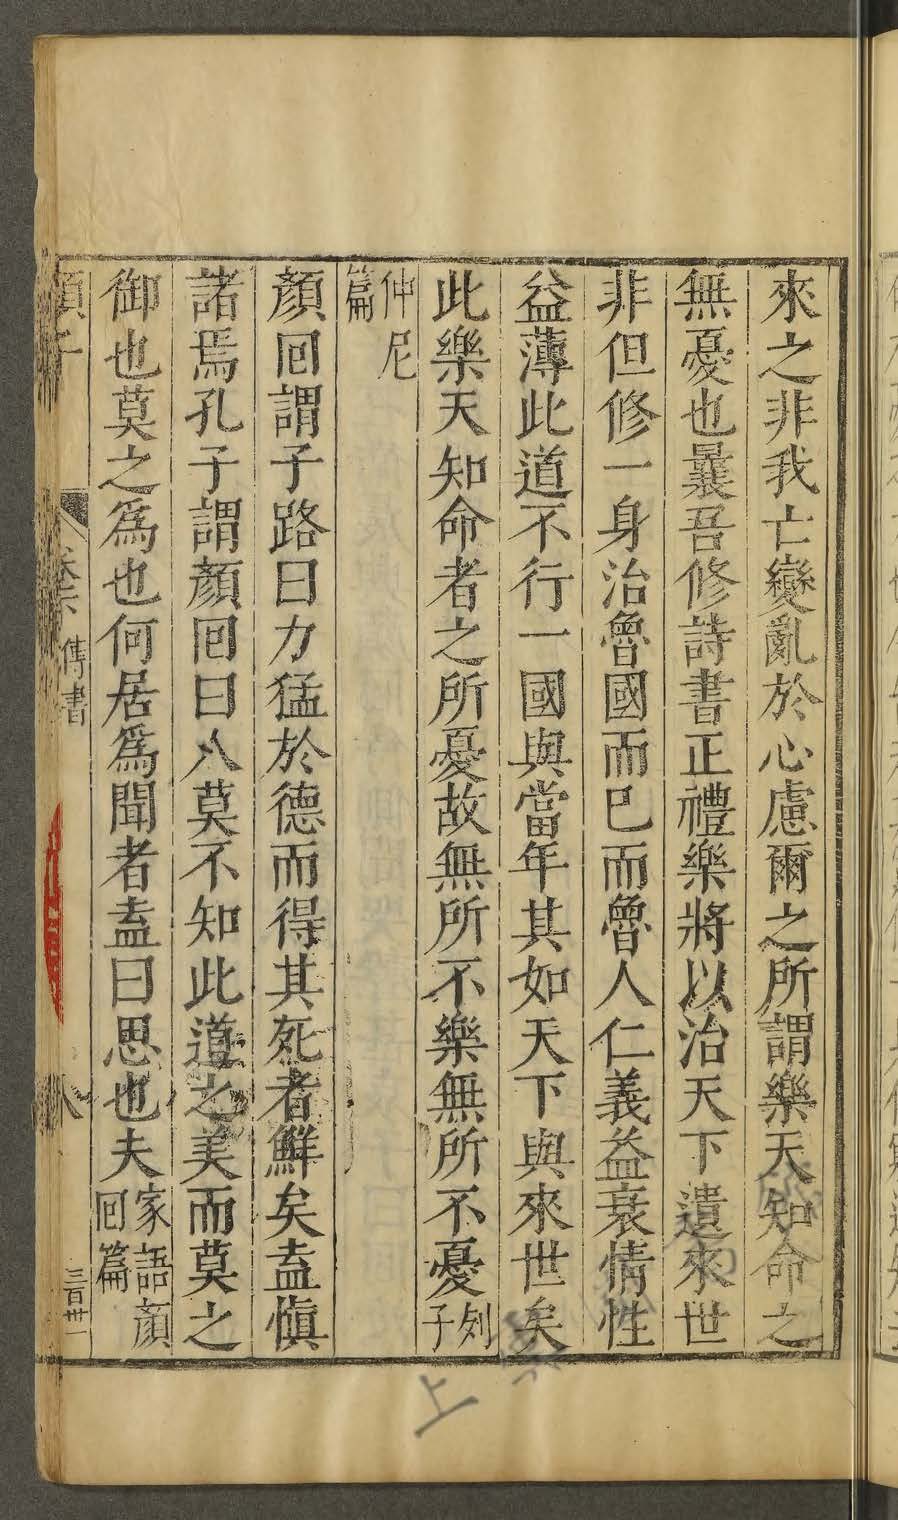 來之非我亡變亂於心慮爾之所謂樂天知命之
無憂也曩吾修詩書正禮樂將以治天下遺來世
非但修一身治魯國而巳而魯人仁義益衰情性
益薄此道不行一國與當年其如天下與來世矣
此樂天知命者之所憂故無所不樂無所不憂列子
仲尼篇
顏囘謂子路曰力猛於德而得其死者鮮矣盍愼
諸焉孔子謂顏囘曰人莫不知此道之美而莫之
御也莫之爲也何居爲聞者盍曰思也夫家語顏囘篇
顏子 卷六 傳書 八 三百卅一
上